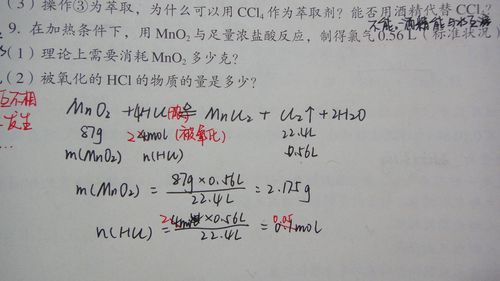 (3) 操作③为萃取，为什么可以用 CCl₄ 作为萃取剂？能否用酒精代替 CCl₄？
不能，酒精能与水互溶
9. 在加热条件下，用 MnO₂ 与足量浓盐酸反应，制得氯气 0.56 L（标准状况）
(1) 理论上需要消耗 MnO₂ 多少克？
(2) 被氧化的 HCl 的物质的量是多少？
互不相
发生
MnO₂ + 4HCl(浓) ≜ MnCl₂ + Cl₂↑ + 2H₂O
87g 2mol (被氧化) 22.4L
m(MnO₂) n(HCl) 0.56L
m(MnO₂) = 87g×0.56L / 22.4L = 2.175g
n(HCl) = 2mol×0.56L / 22.4L = 0.05mol